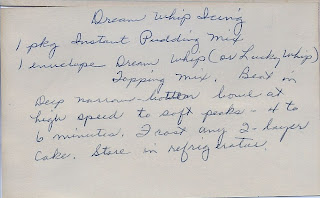 Dream Whip Icing
1 pkg Instant Pudding Mix
1 envelope Dream Whip (or Lucky Whip)
Topping Mix. Beat in
Deep narrow-bottom bowl at
high speed to soft peaks - 4 to
6 minutes. Frost any 2-layer
Cake. Store in refrigerator.